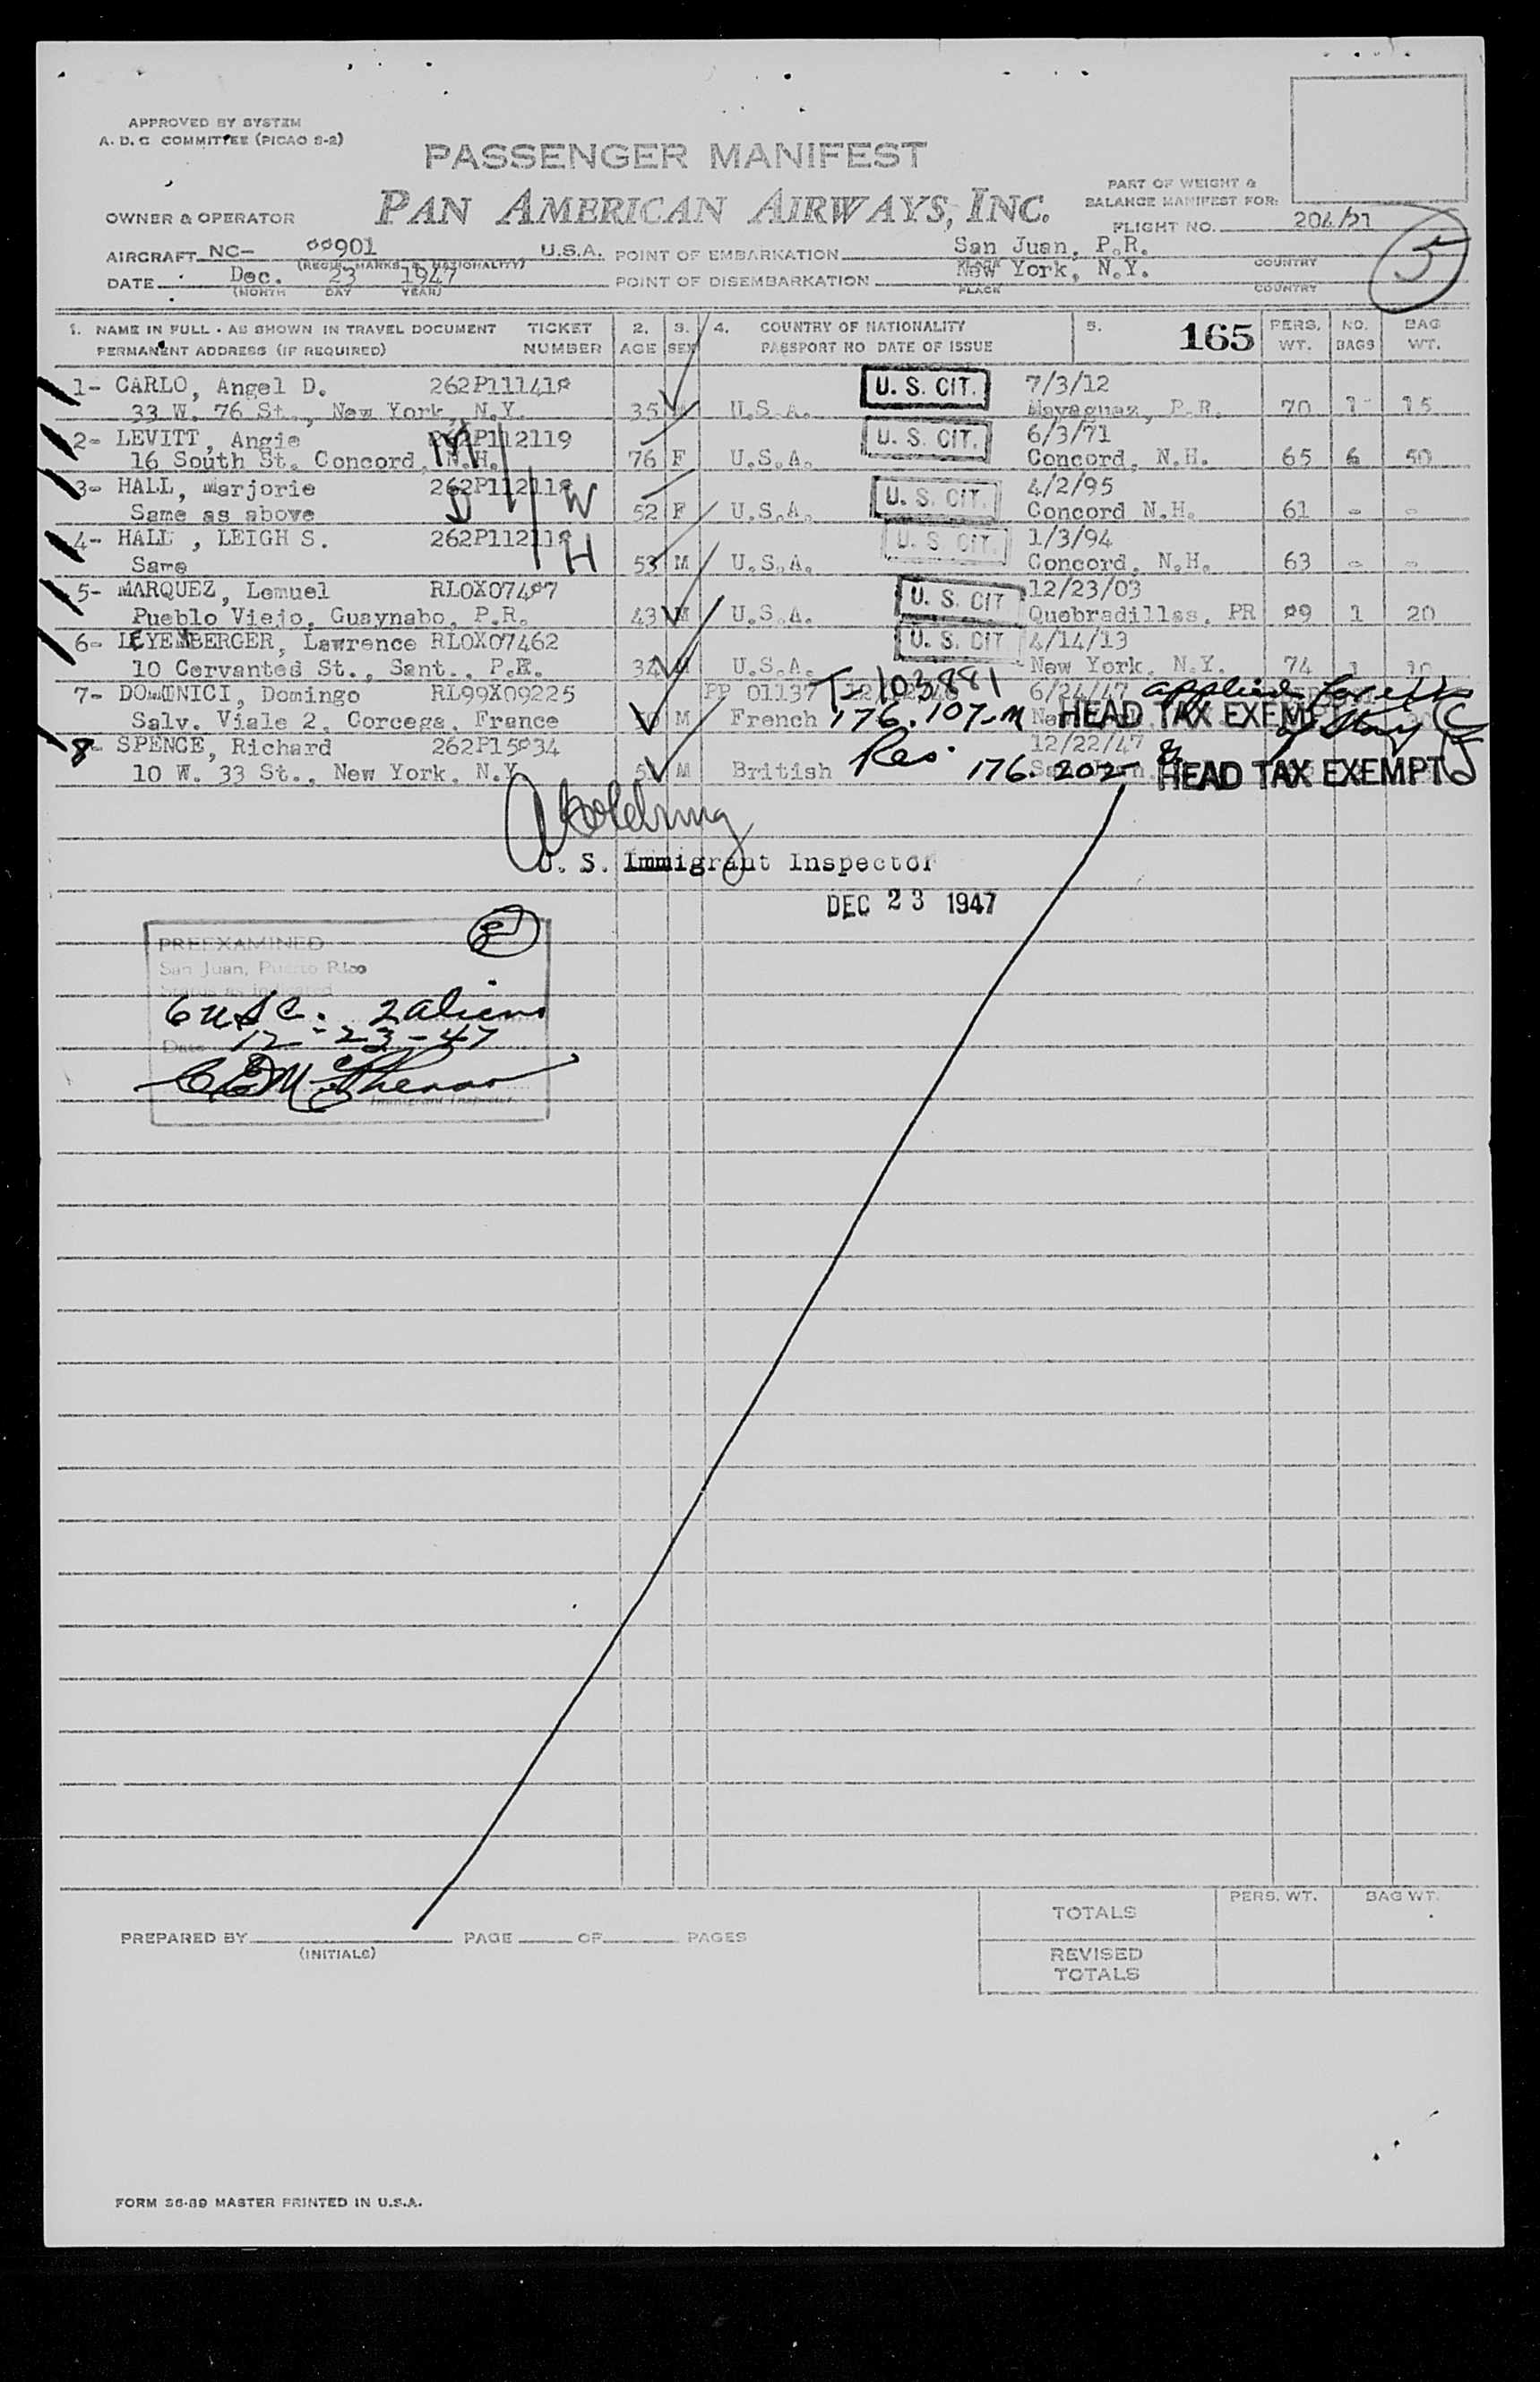 APPROVED BY SYSTEM
A. D. C. COMMITTEE (PICAO S-2)
PASSENGER MANIFEST
PAN AMERICAN AIRWAYS, INC.
OWNER & OPERATOR
PART OF WEIGHT &
BALANCE MANIFEST FOR:
FLIGHT NO. 204/21
5
AIRCRAFT NC- 88901 U.S.A. POINT OF EMBARKATION San Juan, P.R.
(REGIS. MARKS & NATIONALITY) PLACE COUNTRY
DATE Dec. 23 1947 POINT OF DISEMBARKATION New York, N.Y.
(MONTH DAY YEAR) PLACE COUNTRY
1. NAME IN FULL - AS SHOWN IN TRAVEL DOCUMENT TICKET 2. 3. 4. COUNTRY OF NATIONALITY 5. 165 PERS. NO. BAG
PERMANENT ADDRESS (IF REQUIRED) NUMBER AGE SEX PASSPORT NO DATE OF ISSUE WT. BAGS WT.
1- CARLO, Angel D. 262P111418 U. S. CIT. 7/3/12
33 W. 76 St., New York, N.Y. 35 U.S.A. Mayaguez, P.R. 70 1 15
2- LEVITT, Angie 262P112119 M U. S. CIT. 6/3/71
16 South St. Concord, N.H. 76 F U.S.A. Concord, N.H. 65 6 50
3- HALL, Marjorie 262P112118 D W U. S. CIT. 4/2/95
Same as above 52 F U.S.A. Concord N.H. 61 - -
4- HALL , LEIGH S. 262P112118 H U. S. CIT. 1/3/94
Same 53 M U.S.A. Concord, N.H. 63 - -
5- MARQUEZ, Lemuel RLOX07487 U. S. CIT 12/23/03
Pueblo Viejo, Guaynabo, P.R. 43 M U.S.A. Quebradillas, PR 89 1 20
6- LEYENBERGER, Lawrence RLOX07462 U. S. CIT 4/14/13
10 Cervantes St., Sant., P.R. 34 M U.S.A. New York, N.Y. 74 1 10
7- DOMINICI, Domingo RL99X09225 PP 01137 T-2/103881 6/24/47 applied for
Salv. Viale 2, Corcega, France M French 176.107-M HEAD TAX EXEMPT of Stay
8- SPENCE, Richard 262P15834 12/22/47
10 W. 33 St., New York, N.Y. M British Res. 176.202 HEAD TAX EXEMPT
U. S. Immigrant Inspector
DEC 23 1947
8
PREEXAMINED
San Juan, Puerto Rico
Status as indicated
6 USC. 2 aliens
Date 12-23-47
Immigrant Inspector
TOTALS PERS. WT. BAG WT.
PREPARED BY PAGE OF PAGES
(INITIALS)
REVISED
TOTALS
FORM S6-89 MASTER PRINTED IN U.S.A.